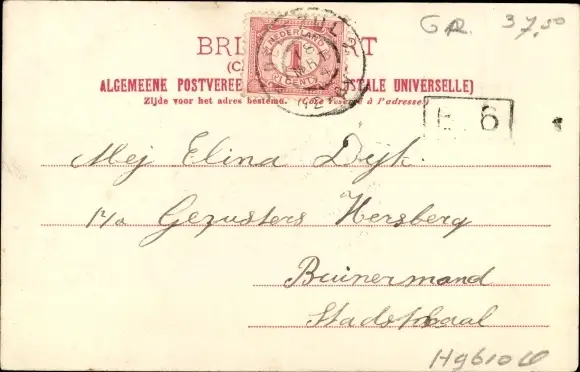 GR. 37,50
BRI T
(C
ALGEMEENE POSTVEREE STALE UNIVERSELLE)
Zijde voor het adres bestemd. (Côté réservé à l'adresse
NEDERLAND
1
CENT
6
Mej Elina Dijk.
p/a Gezusters Hersberg
Buinermond
Stadskanaal
Hg610